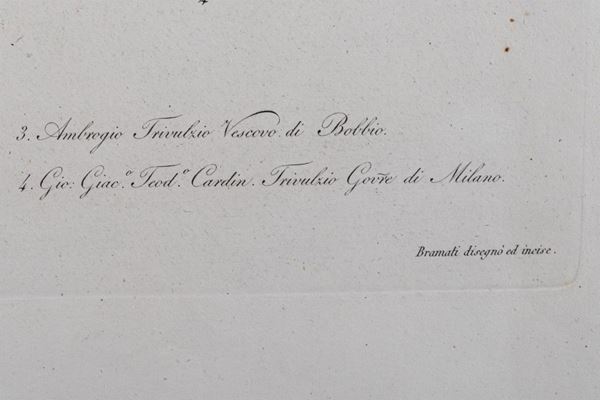 3. Ambrogio Trivulzio Vescovo di Bobbio.
4. Gio: Giac.º Teod.º Cardin. Trivulzio Gov̅r̅e di Milano.
Bramati disegnò ed incise.